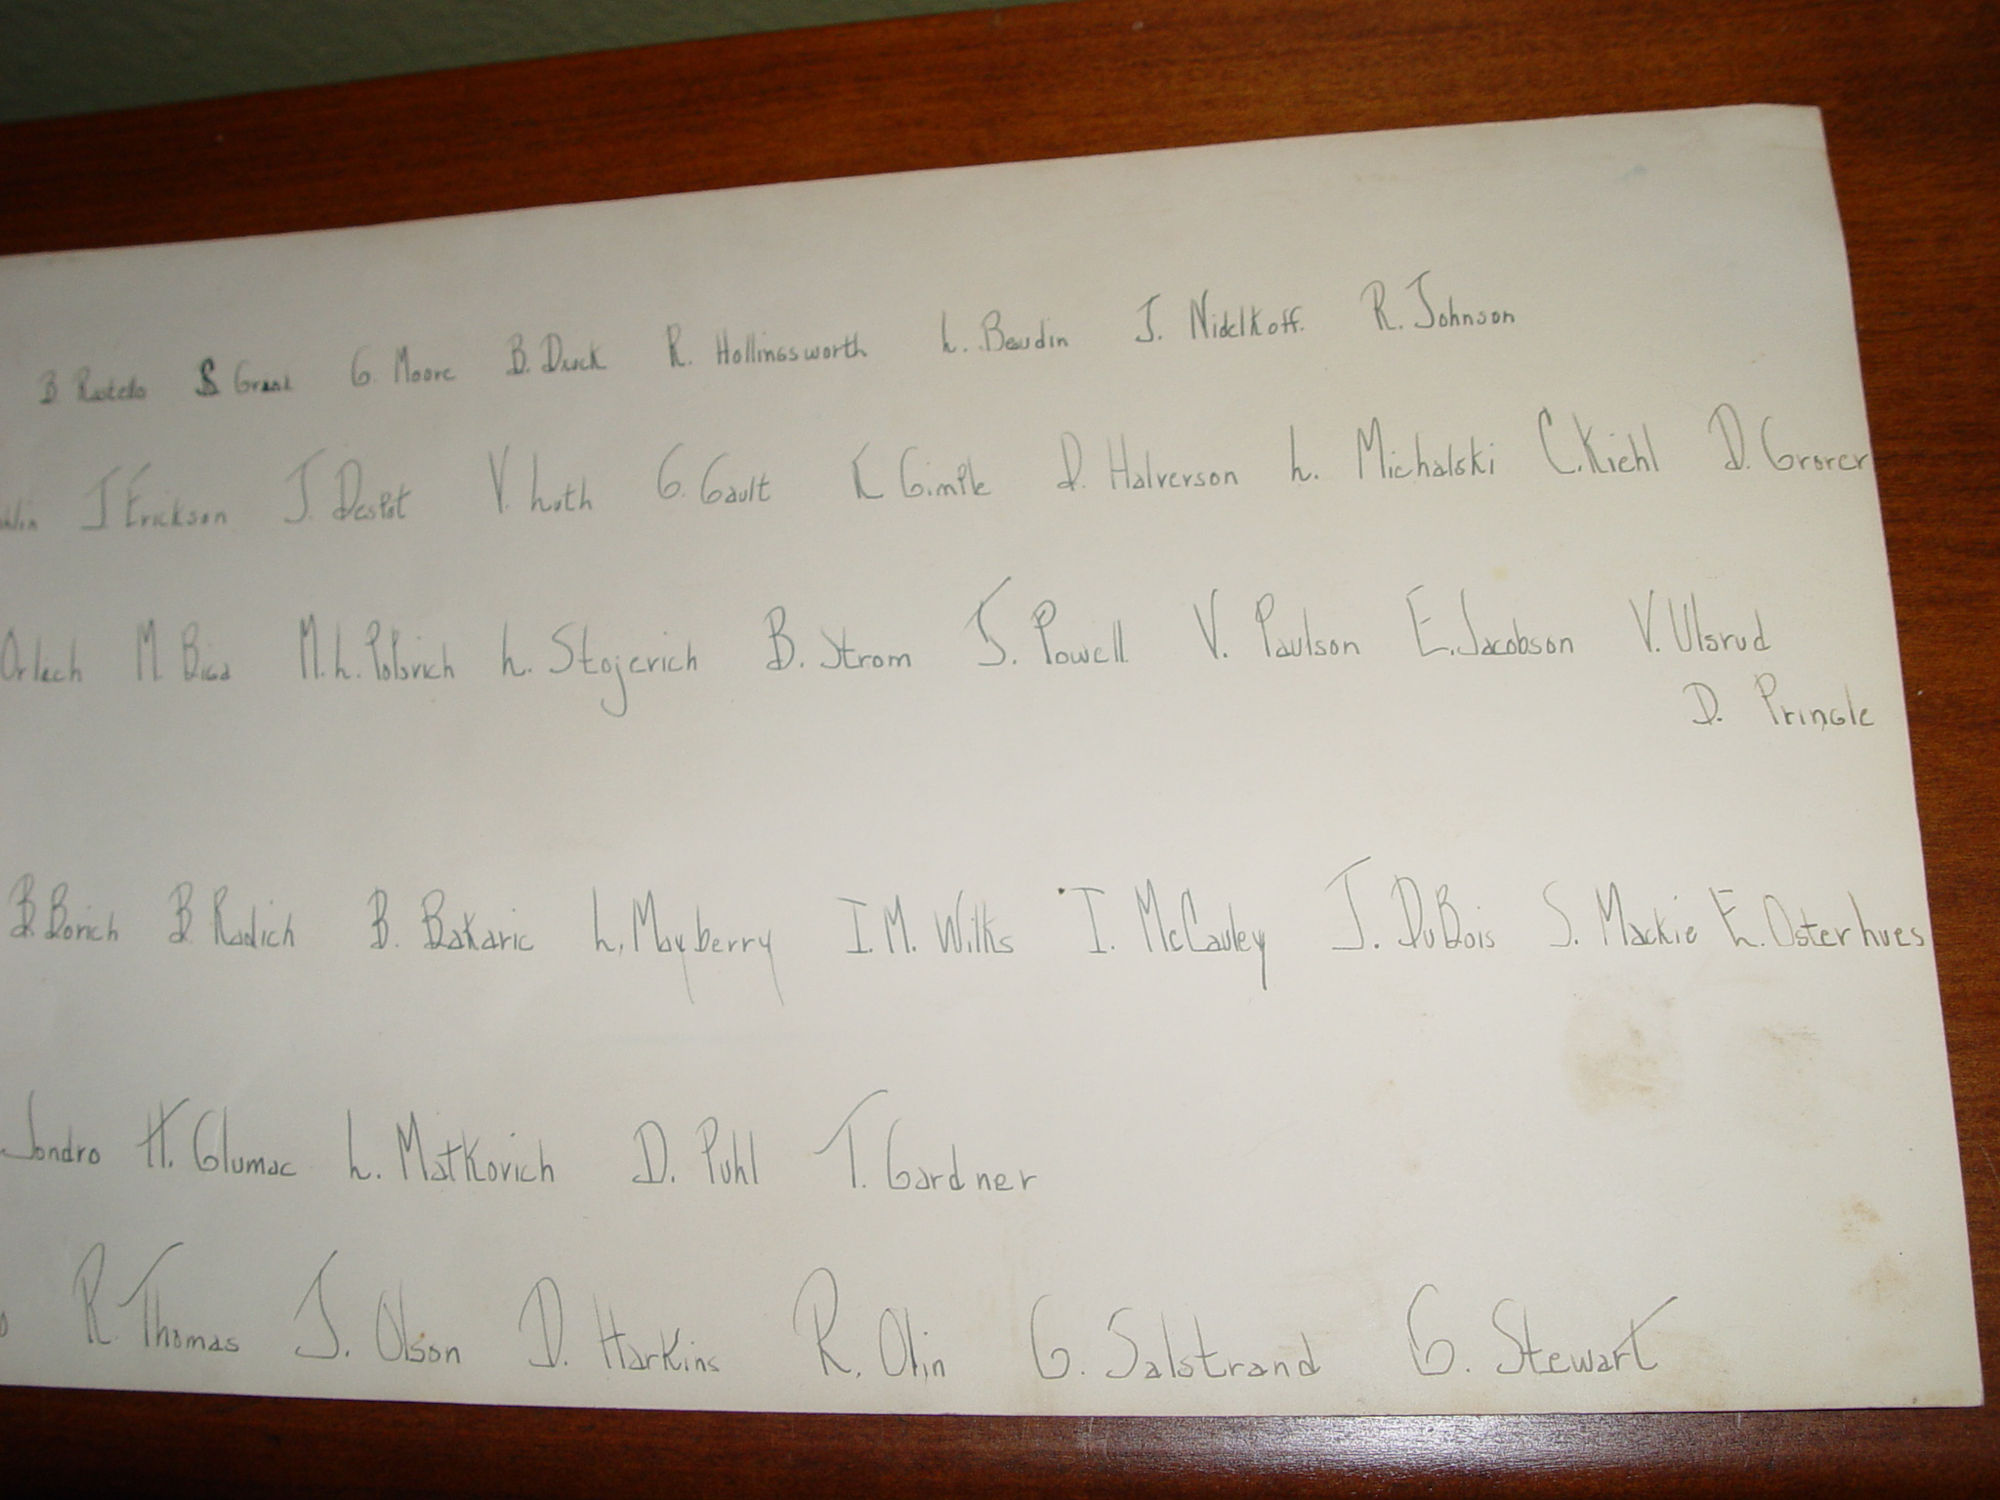 B S Grant G. Moore B. R. Hollingsworth L. Beudin J. Nidelkoff. R. Johnson
J Erickson J. Despot V. Luth G. Gault K Gimple D. Halverson L. Michalski C. Kiehl D. Grover
Orlech M M. L. Polovich L. Stojevich B. Strom J. Powell V. Paulson E. Jacobson V. Ulsrud
D. Pringle
B. Borich B Radich B. Bakaric L. Mayberry I. M. Wilks I. McCauley J. DuBois S. Mackie E. Osterhues
Jondro H. Glumac L. Matkovich D. Puhl T. Gardner
R. Thomas J. Olson D. Harkins R. Olin G. Salstrand G. Stewart